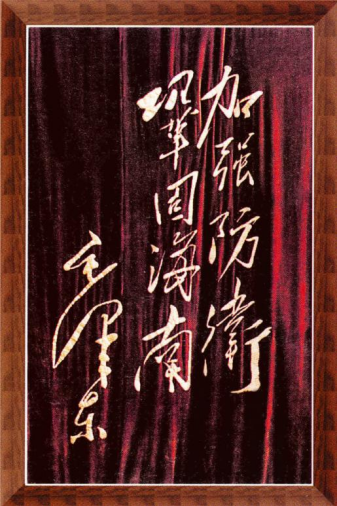 加强防衛
巩鞏固海南
毛泽东